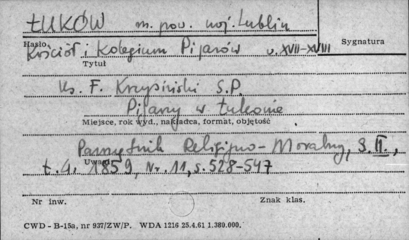 ŁUKÓW m. pow. woj. Lublin
Hasło
Kościół i Kolegium Pijarów w. XVII-XVIII
Sygnatura
Tytuł
Ks. F. Krzysiński S.P.
Pijarzy w Łukowie
Miejsce, rok wyd., nakładca, format, objętość
Pamiętnik Religijno-Moralny, S.II.,
Uwagi
t.4. 1859, Nr. 11, s. 528-547
Nr inw.
Znak klas.
CWD - B-15a, nr 937/ZW/P. WDA 1216 25.4.61 1.380.000.